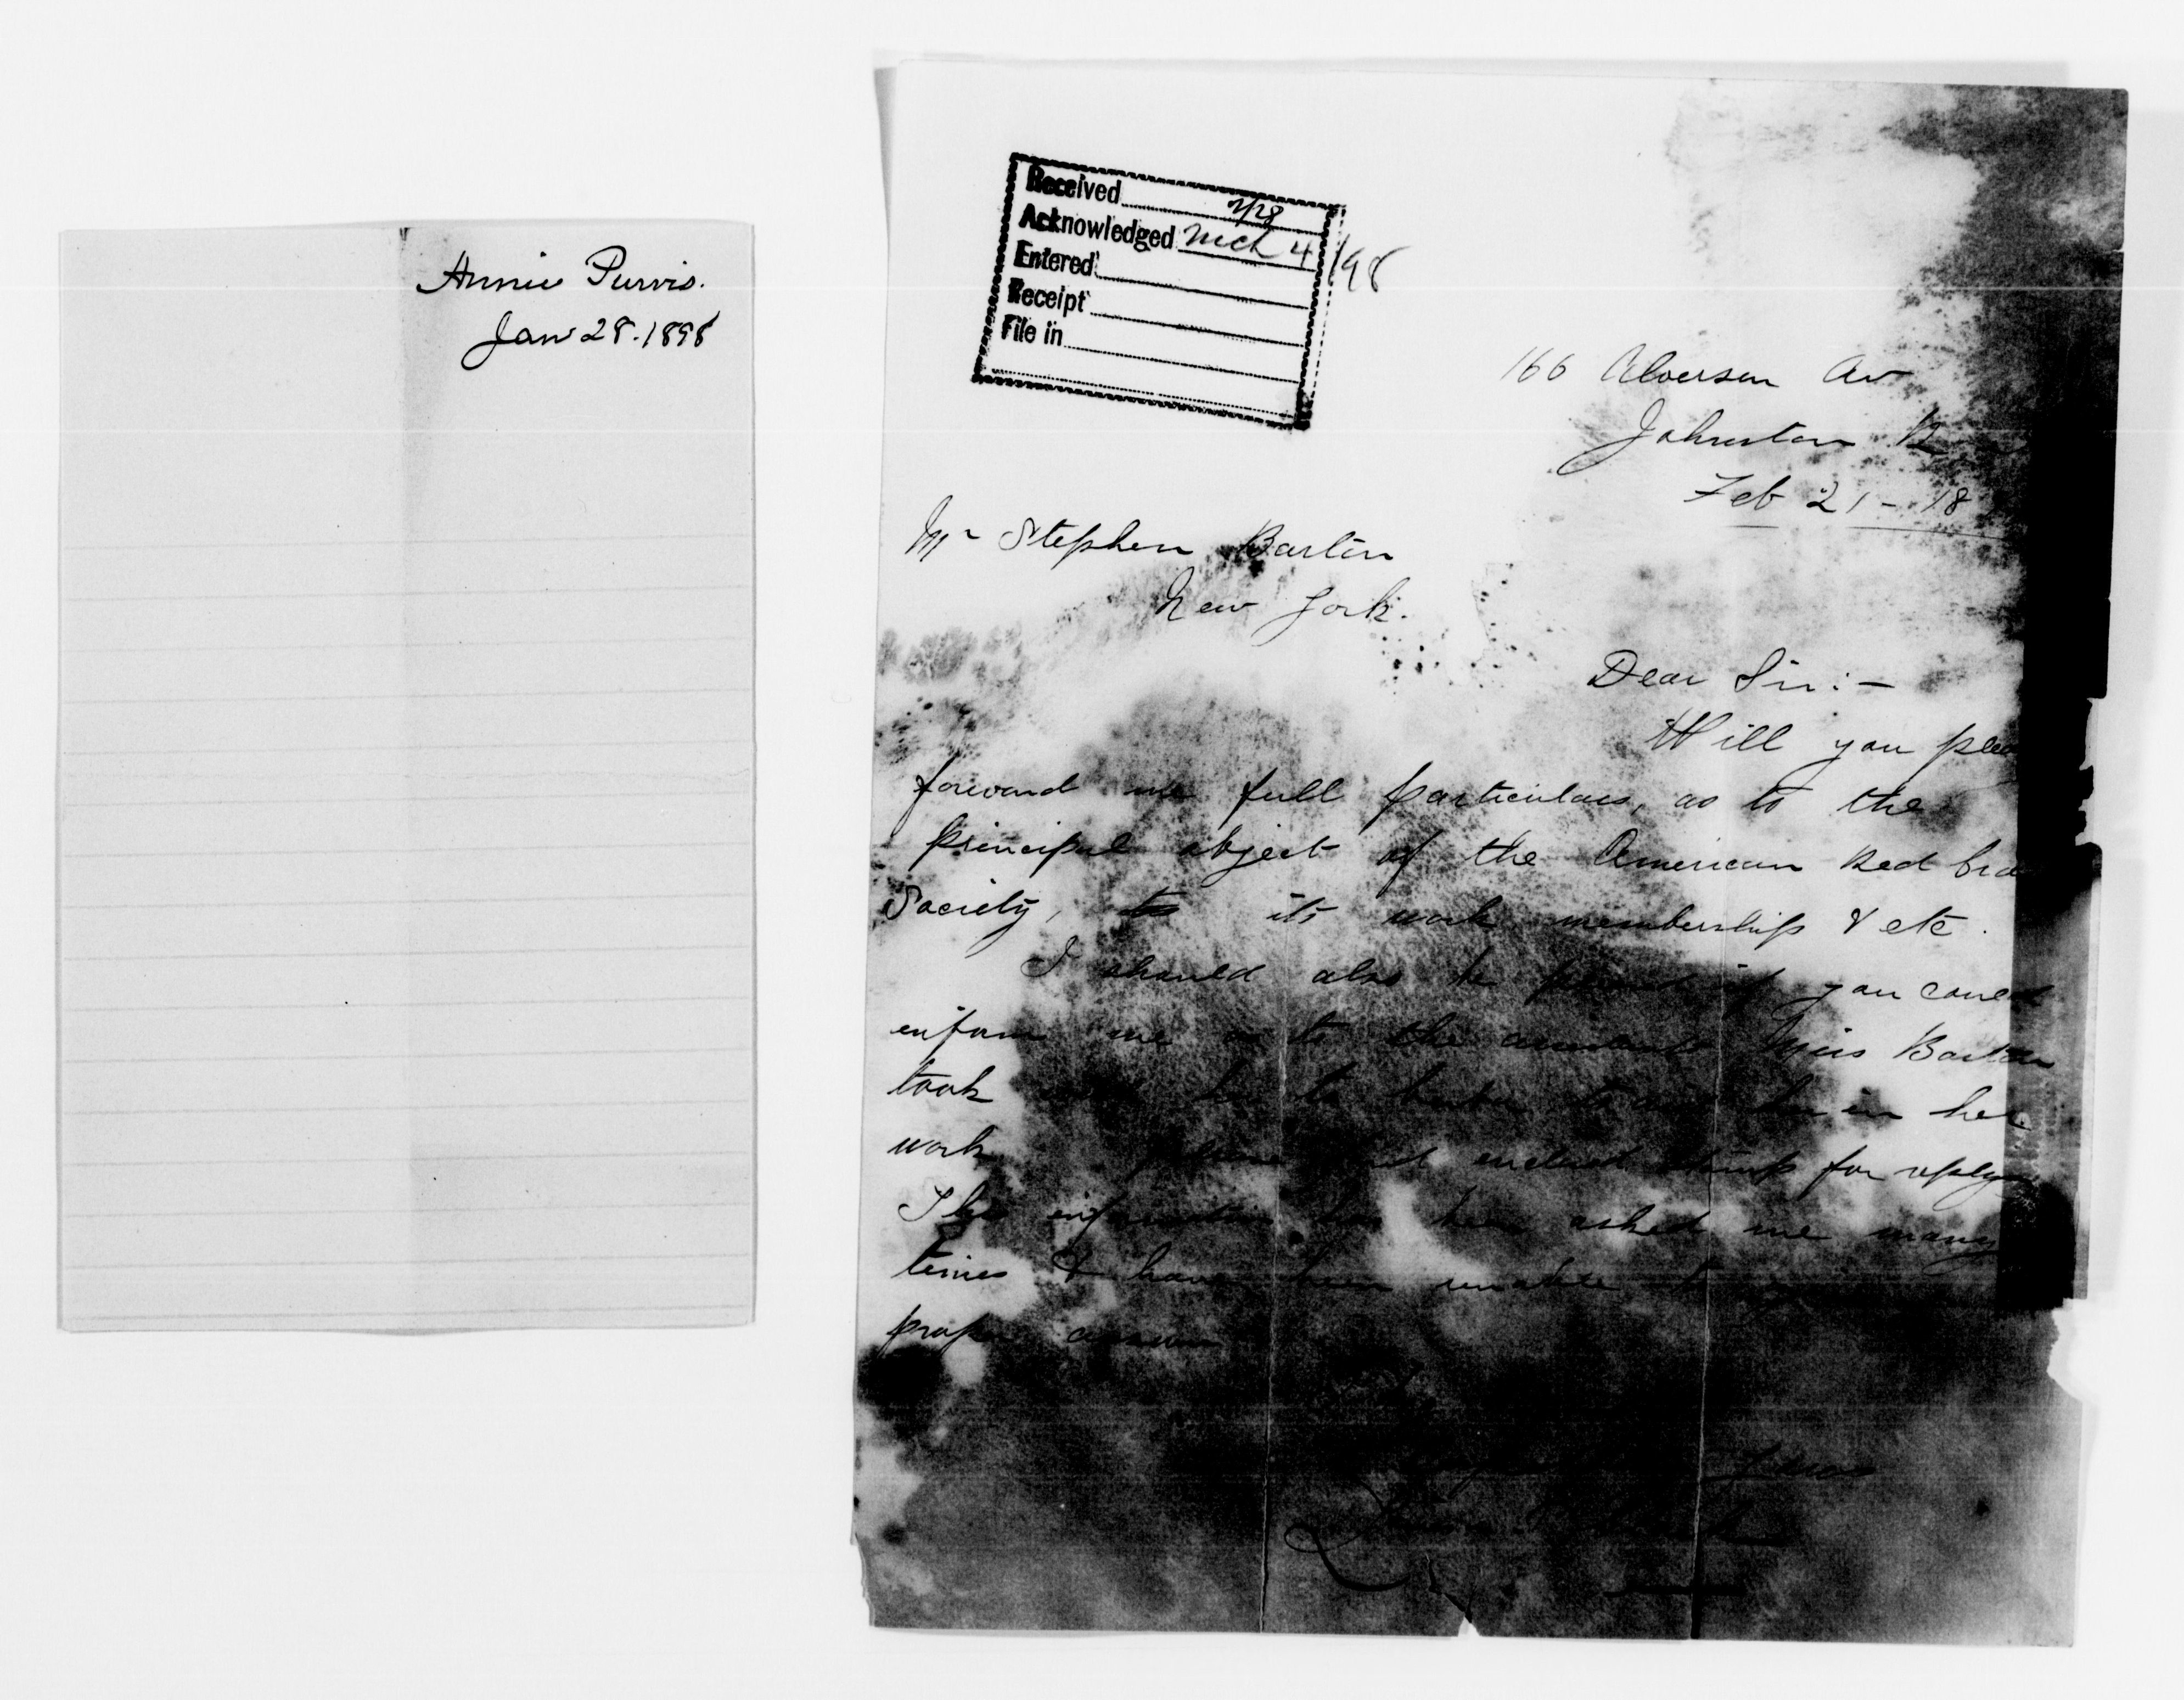 Annie Purvis.
Jan 28. 1898
Received 2/28
Acknowledged Mch 4/98
Entered
Receipt
File in
166 Alverson Av
Johnston R
Feb 21 - 18
Mr Stephen Barton
New York.
Dear Sir:-
Will you plea
forward me full particulars, as to the
principal object of the American Red Cro
Society, to its work membership & etc.
I should also be if you could
inform me as to the Miss Barton
took her to in her
work enclosed stamp for reply
The information has been asked me many
times & have been unable to
proper answer
Yours